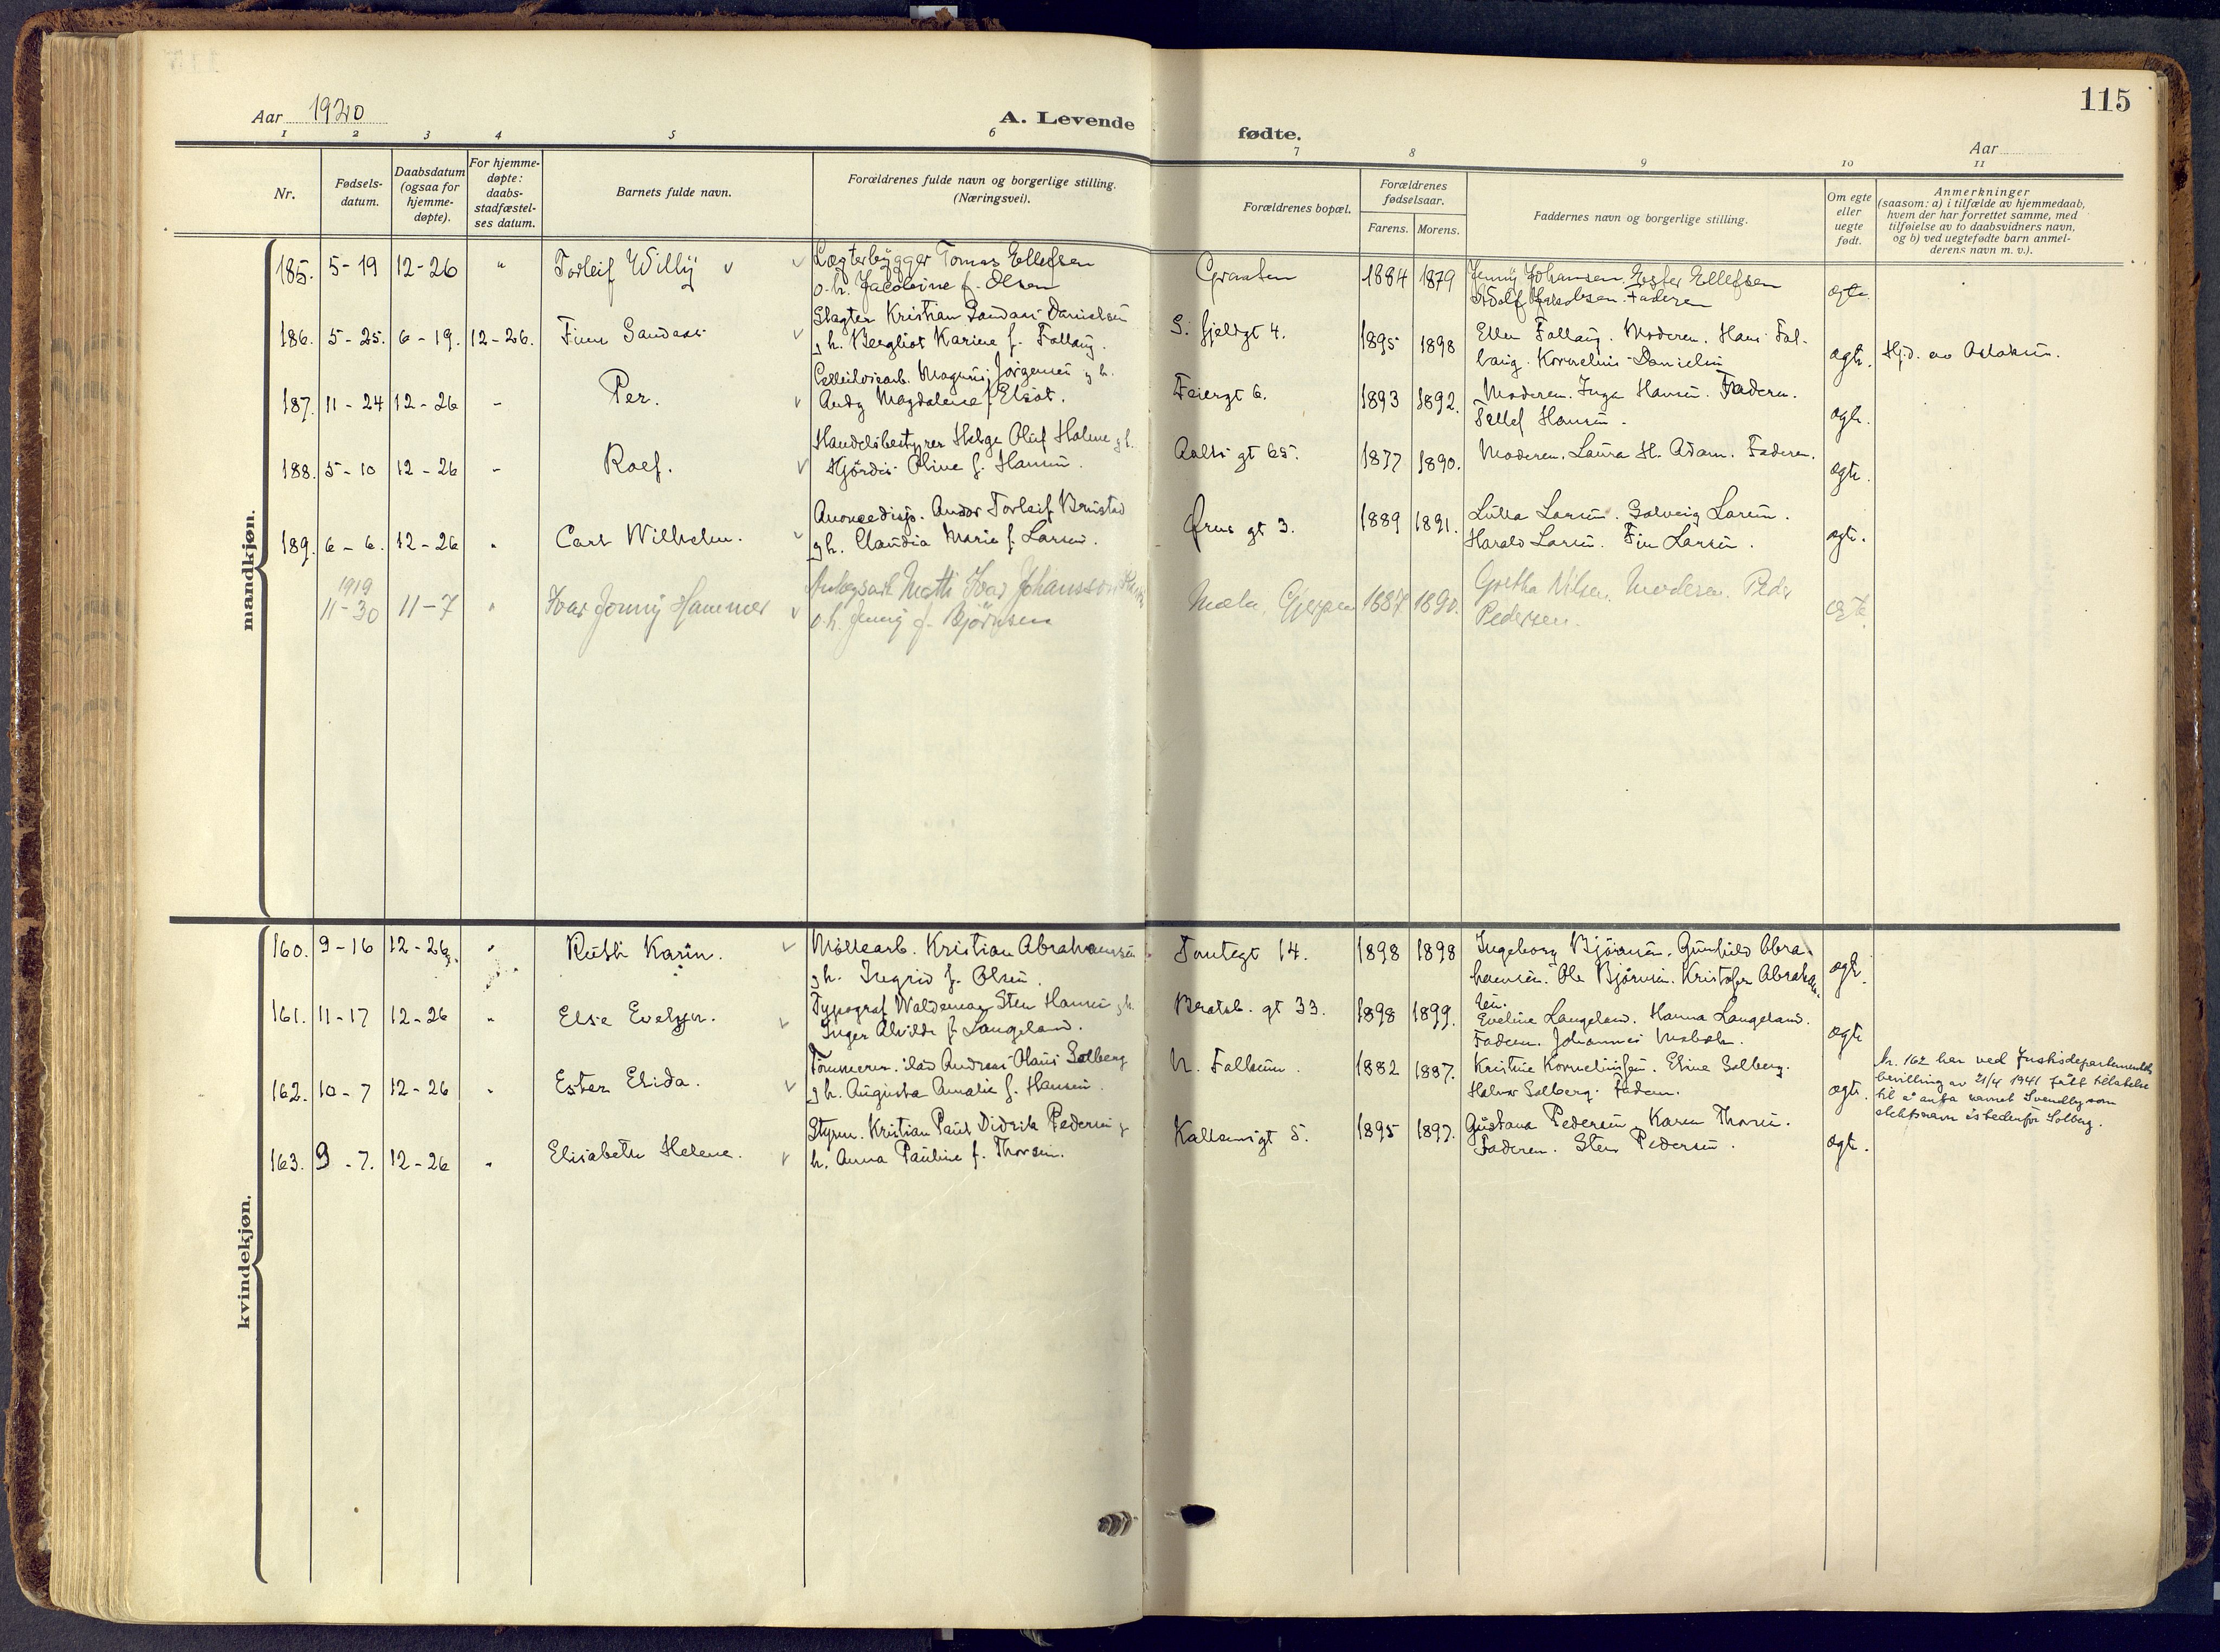 115
Aar 1920
A. Levende fødte.
Aar
1 2 3 4 5 6 7 8 9 10 11
Nr.
Fødsels-
datum.
Daabsdatum
(ogsaa for
hjemme-
døpte).
For hjemme-
døpte:
daabs-
stadfæstel-
ses datum.
Barnets fulde navn.
Forældrenes fulde navn og borgerlige stilling.
(Næringsvei).
Forældrenes bopæl.
Forældrenes
fødselsaar.
Farens. Morens.
Faddernes navn og borgerlige stilling.
Om egte
eller
uegte
født.
Anmerkninger
(saasom: a) i tilfælde av hjemmedaab,
hvem der har forrettet samme, med
tilføielse av to daabsvidners navn,
og b) ved uegtefødte barn anmel-
derens navn m. v.).
mandkjøn.
185. 5-19 12-26 " Torleif Willy
Lægterbygger Tomas Ellefsen
o.h. Jacobine f. Olsen
Graaten 1884 1879
Jenny Johansen, Ester Ellefsen
Adolf Jacobsen. Faderen
egte
186. 5-25. 6-19. 12-26. Finn
Slagter Kristian Danielsen
g h. Bergliot Karine f. Fallang.
S. fjeldgt 4. 1895 1898
Ellen Fallang. Moderen. Hans Fal-
lang. Kornelius Danielsen
ægte. Hjd. av
187. 11-24 12-26 - Per.
Magnus Jørgensen g h.
Magdalena f. Elset.
Feiergt 6. 1893 1892.
Moderen. Inga Hansen. Faderen.
Tellef Hansen.
ægte.
188. 5-10 12-26 - Rolf.
Handelsbestyrer Helge Oluf Holme g h.
Hjørdis Oline f. Hansen.
gt 65. 1877 1890.
Moderen. Laura H. Adam. Faderen.
ægte.
189. 6-6. 12-26 " Carl Wilhelm.
Torleif Brusted
g h. Claudia Marie f. Larsen.
gt 3. 1889 1891.
Lulla Larsen. Solveig Larsen.
Harald Larsen. Finn Larsen.
ægte.
1919
11-30 11-7 " Ivar Jonny Hammer
Ivar Johansson
o.h. Jenny f. Björnsen
Mæla, Gjerpen 1887 1890.
Gretha Nilsen, Moderen. Peder
Pedersen.
egte.
kvindekjøn.
160. 9-16 12-26 " Ruth Karin.
Møllearb. Kristian Abrahamsen
g h. Ingrid f. Olsen.
Tomtegt 14. 1898 1898
Ingeborg Bjørnsen. Gunhild Abra-
hamsen. Ole Bjørnsen. Kristofer Abraham-
sen.
ægte.
161. 11-17 12-26 " Else Evelyn.
Typograf Waldemar Sten Hansen g h.
Inger Alvilde f. Langeland.
Bratsb. gt 33. 1898 1899.
Eveline Langeland. Hanna Langeland.
Faderen. Johannes
ægte
162. 10-7 12-26 " Ester Elida.
Andreas Olaus Solberg
g h. Augusta Amalie f. Hansen.
N. Falkum. 1882 1887.
Kristine Korneliussen. Eline Solberg.
Halvor Solberg. Faderen.
ægte.
Nr. 162 har ved Justisdepartementets
bevilling av 21/4 1941 fått tillatelse
til å anta navnet Svendby som
slektsnavn istedenfor Solberg.
163. 9-7. 12-26 " Elisabeth Helene.
Styrm. Kristian Paul Didrik Pedersen g
h. Anna Pauline f. Thorsen.
5. 1895 1897.
Gustava Pedersen Karen Thorsen.
Faderen. Sten Pedersen.
ægte.